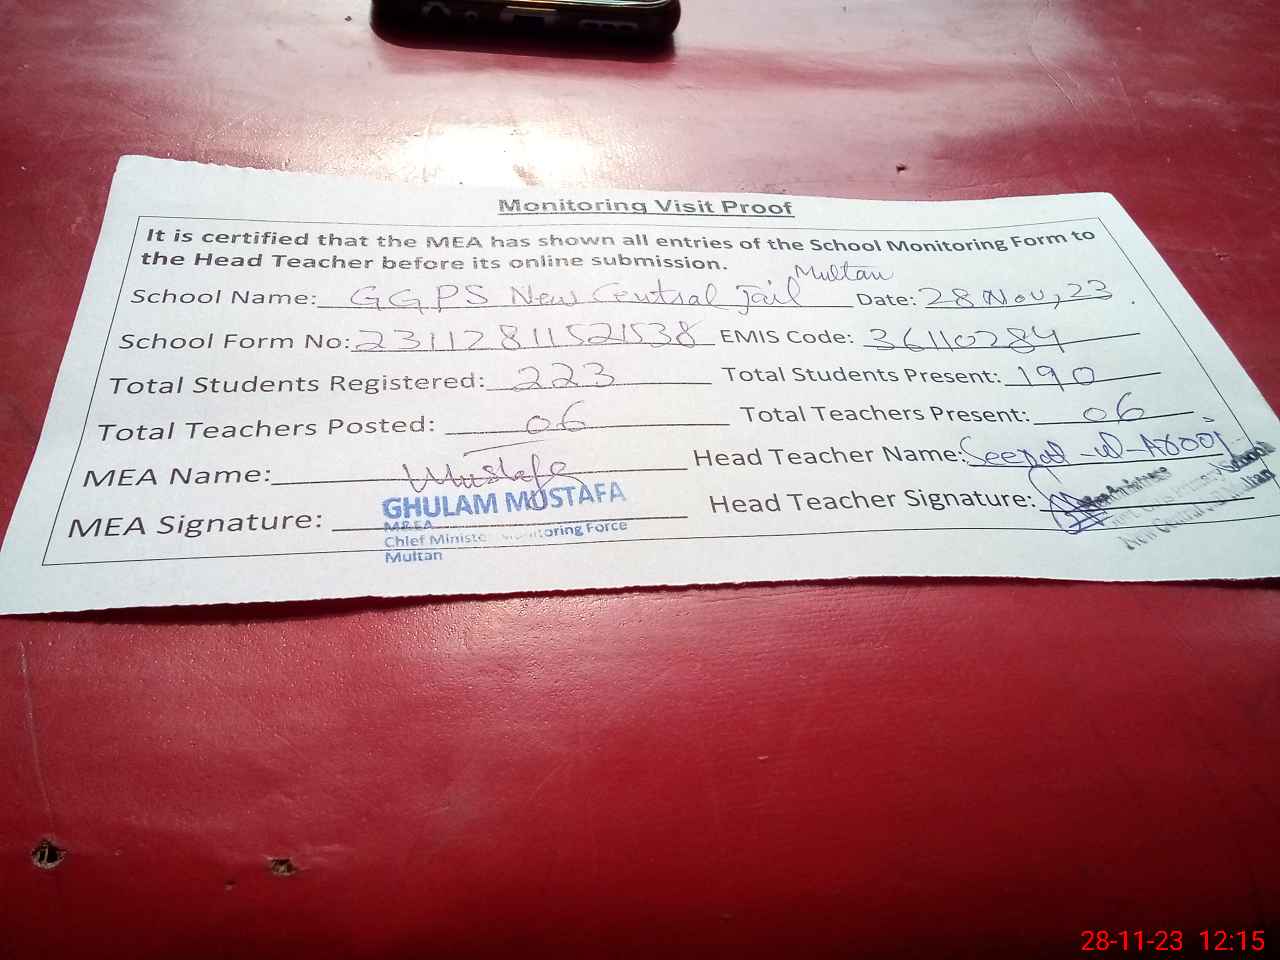 Monitoring Visit Proof
It is certified that the MEA has shown all entries of the School Monitoring Form to
the Head Teacher before its online submission.
Multan
School Name: GGPS New Central Jail Date: 28 Nov, 23
School Form No: 23112811521538 EMIS Code: 36110284
Total Students Registered: 223 Total Students Present: 190
Total Teachers Posted: 06 Total Teachers Present: 06
MEA Name: Mustafa Head Teacher Name:
MEA Signature: Head Teacher Signature:
GHULAM MUSTAFA
MEA
Chief Minister Monitoring Force
Multan
28-11-23 12:15